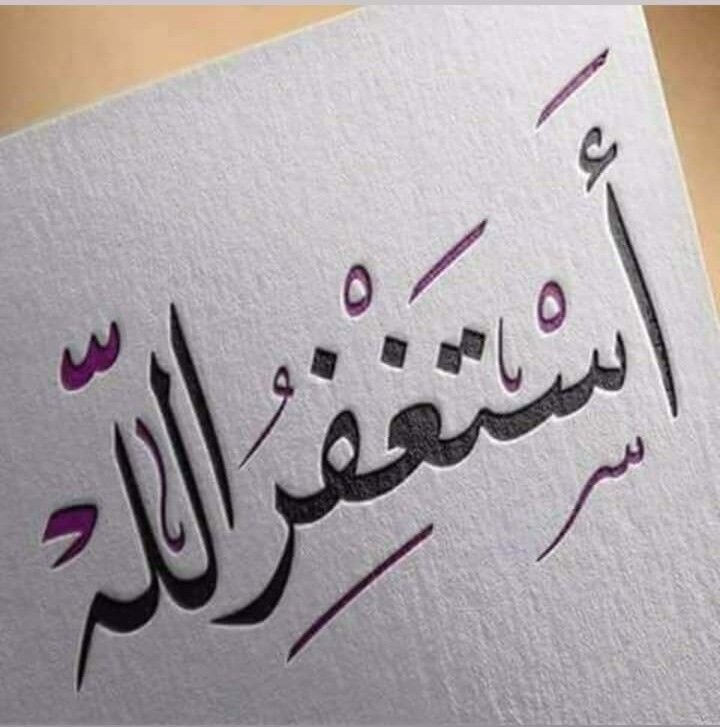 أَسْتَغْفِرُ اللّه